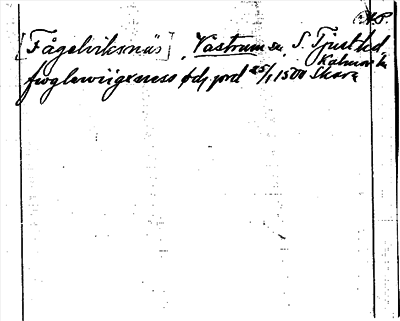 [Fågelviksnäs], Västrum sn, S. Tjust hd,
Kalmar l.
fwglewiigxness 25/1 1500 Skara